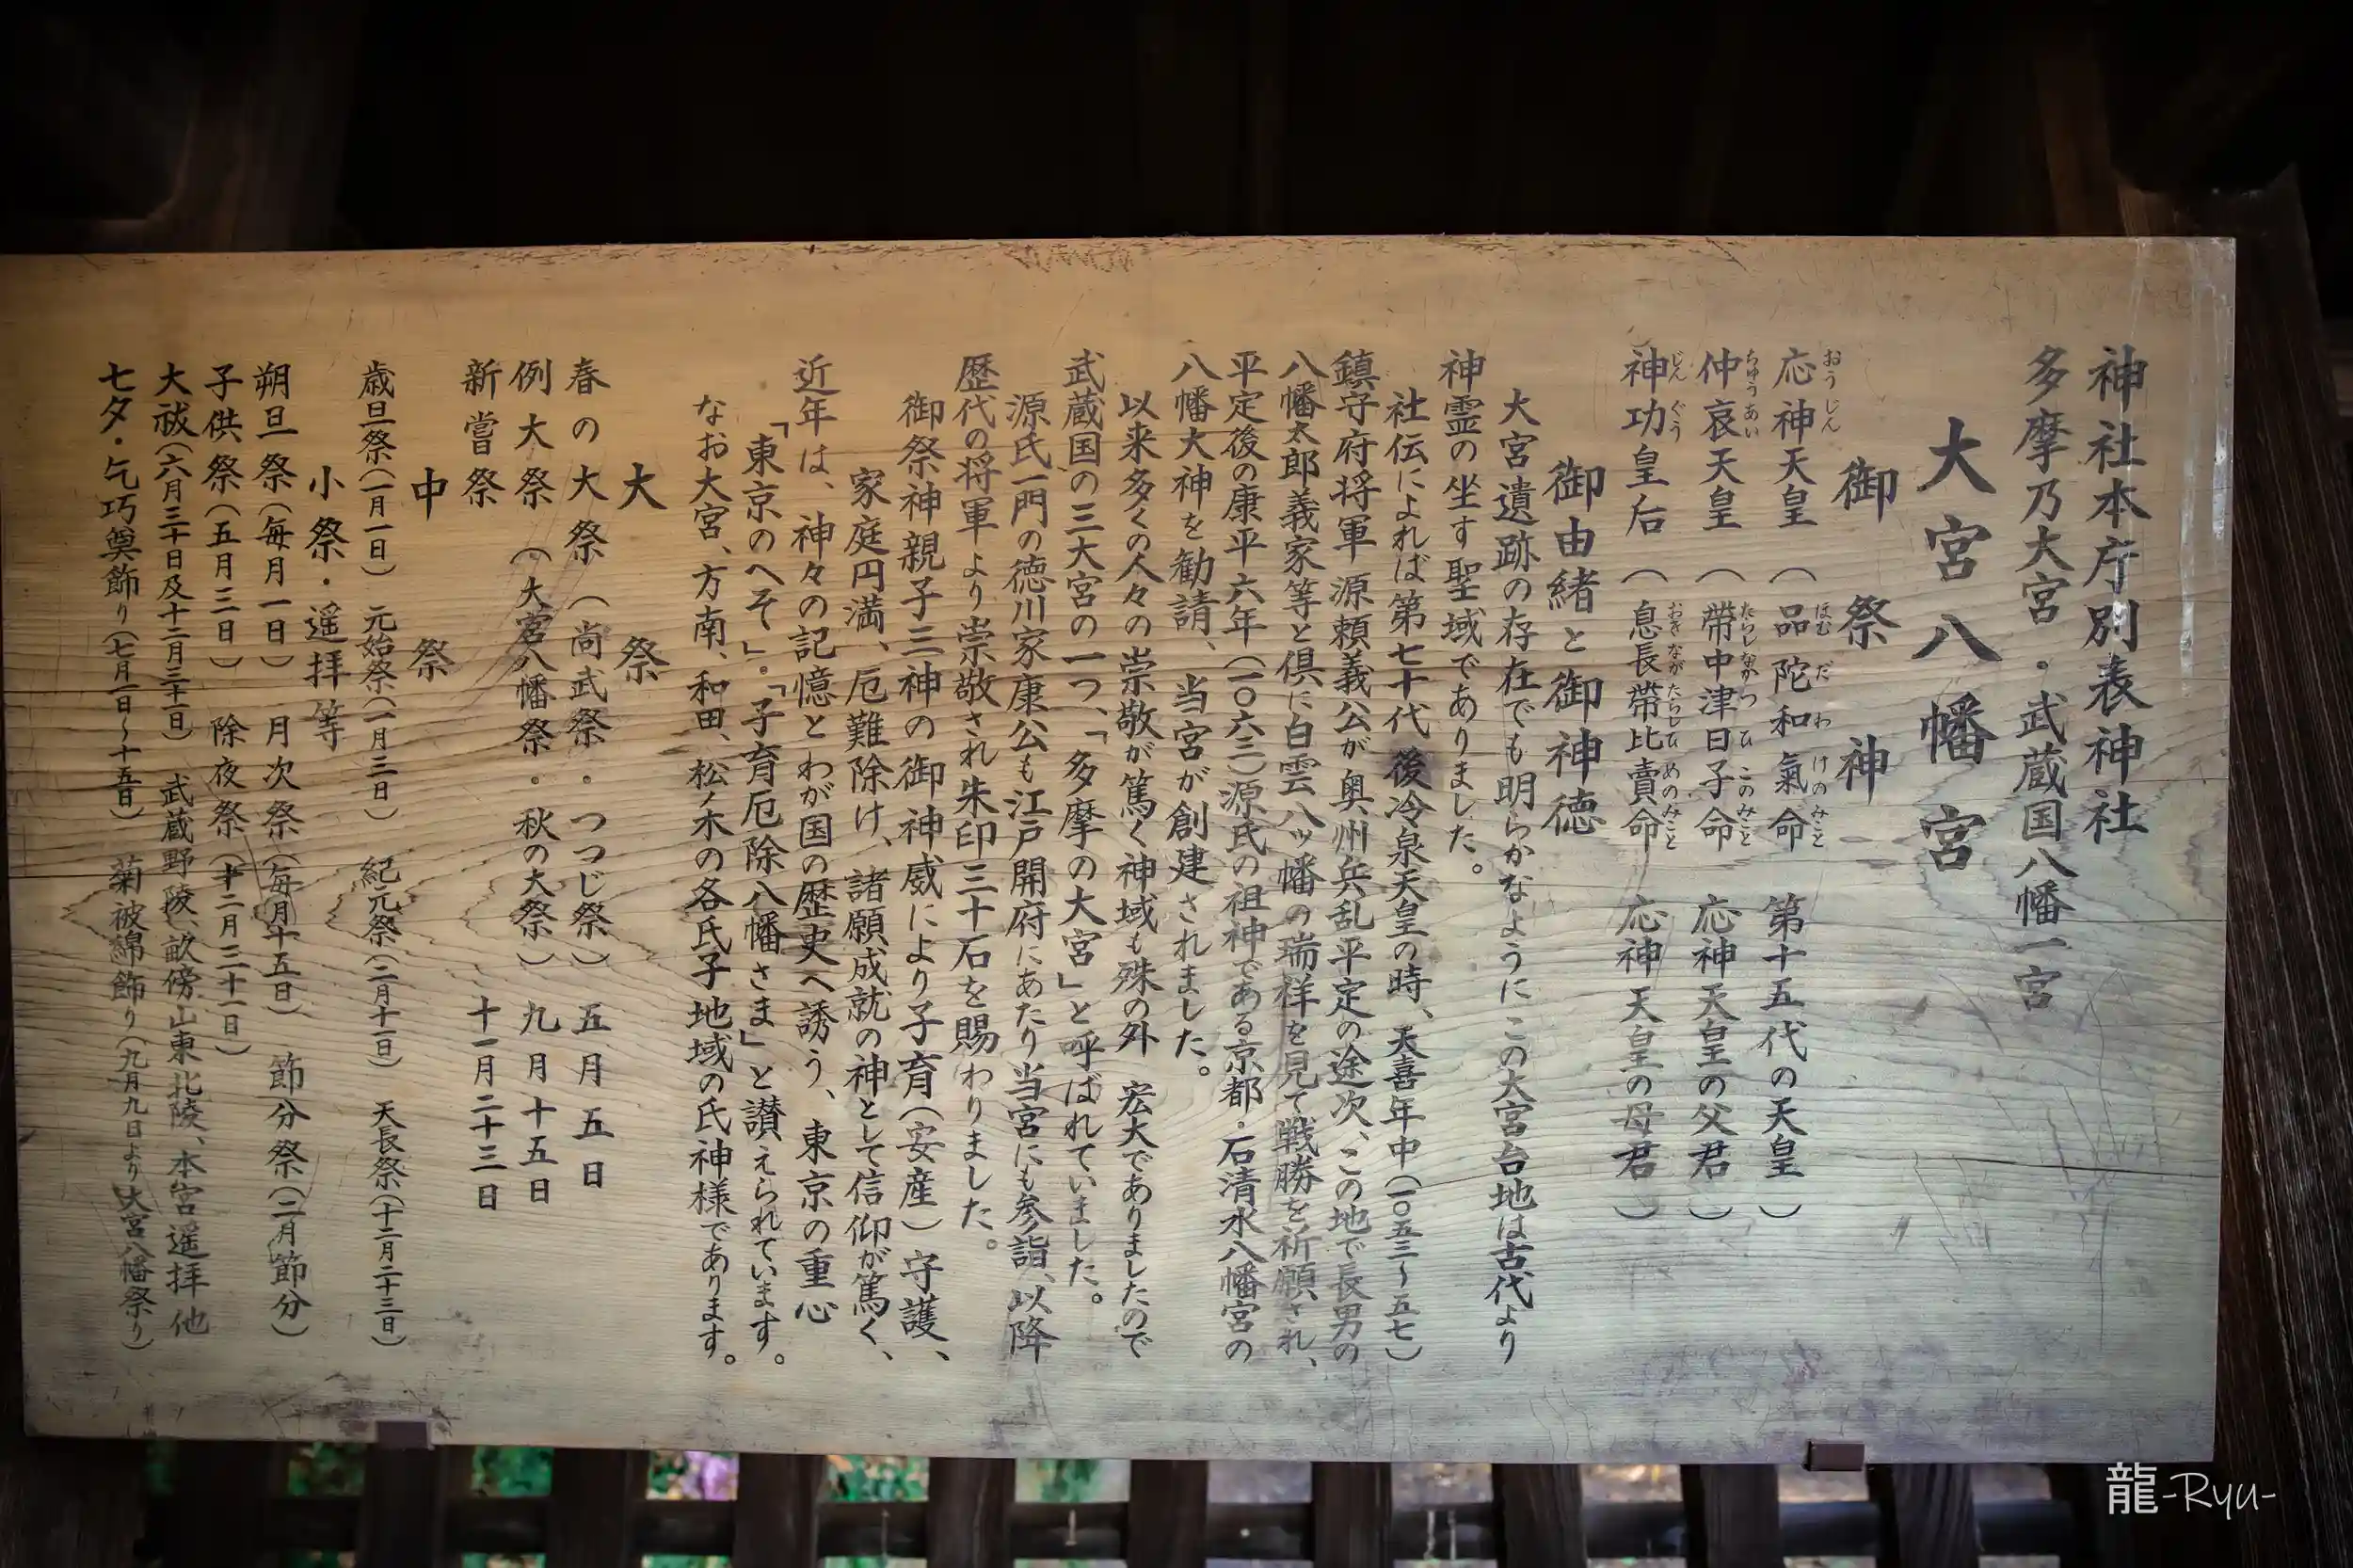 神社本庁別表神社
多摩乃大宮・武蔵国八幡一宮
大宮八幡宮
御祭神
応神天皇（品陀和氣命　第十五代の天皇）
おうじん　ほむだわけのみこと
仲哀天皇（帶中津日子命　応神天皇の父君）
ちゅうあい　たらしなかつひこのみこと
神功皇后（息長帶比賣命　応神天皇の母君）
じんぐう　おきながたらしひめのみこと
御由緒と御神徳
大宮遺跡の存在でも明らかなように この大宮台地は古代より
神霊の坐す聖域でありました。
社伝によれば第七十代 後冷泉天皇の時、天喜年中（一〇五三〜五七）
鎮守府将軍 源頼義公が奥州兵乱平定の途次、この地で長男の
八幡太郎義家等と倶に白雲八ッ幡の瑞祥を見て戦勝を祈願され、
平定後の康平六年（一〇六三）源氏の祖神である京都・石清水八幡宮の
八幡大神を勧請、当宮が創建されました。
以来多くの人々の崇敬が篤く神域も殊の外 宏大でありましたので
武蔵国の三大宮の一つ、「多摩の大宮」と呼ばれていました。
源氏一門の徳川家康公も江戸開府にあたり当宮にも参詣、以降
歴代の将軍より崇敬され朱印三十石を賜わりました。
御祭神親子三神の御神威により子育（安産）守護、
家庭円満、厄難除け、諸願成就の神として信仰が篤く、
近年は、神々の記憶とわが国の歴史へ誘う、東京の重心
「東京のへそ」・「子育厄除八幡さま」と讃えられています。
なお大宮、方南、和田、松ノ木の各氏子地域の氏神様であります。
大祭
春の大祭（尚武祭・つつじ祭）　五月五日
例大祭（大宮八幡祭・秋の大祭）　九月十五日
新嘗祭　十一月二十三日
中祭
歳旦祭（一月一日）　元始祭（一月三日）　紀元祭（二月十一日）　天長祭（十二月二十三日）
小祭・遥拝等
朔旦祭（毎月一日）　月次祭（毎月十五日）　節分祭（二月節分）
子供祭（五月三日）　除夜祭（十二月三十一日）
大祓（六月三十日及十二月三十一日）　武蔵野陵、畝傍山東北陵、本宮遥拝 他
七夕・乞巧奠飾り（七月一日〜十五日）　菊被綿飾り（九月九日より大宮八幡祭り）
龍-Ryu-